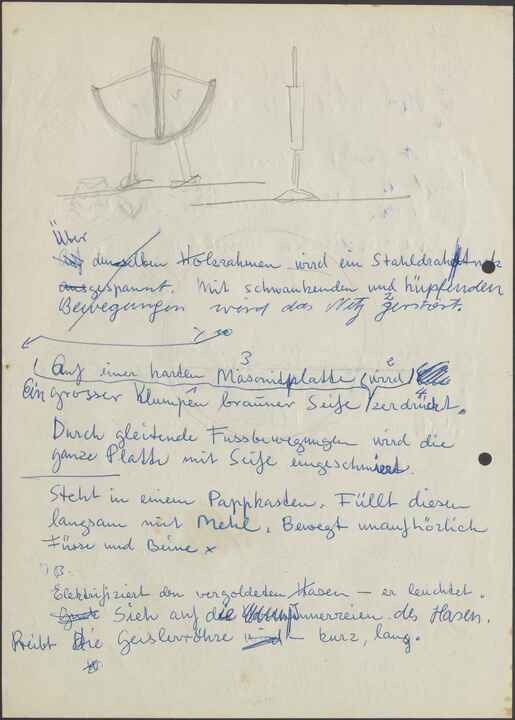 Über
denselben Holzrahmen wird ein Stahldrahtnetz
gespannt. Mit schwankenden und hüpfenden
Bewegungen wird das Netz zerstört.
Auf einer harten Masonitplatte (wird)
3 e
Ein grosser Klumpen brauner Seife zerdrückt.
4
Durch gleitende Fussbewegungen wird die
ganze Platte mit Seife eingeschmiert.
Steht in einem Pappkasten. Füllt diesen
langsam mit Mehl. Bewegt unaufhörlich
Füsse und Beine x
Elektrifiziert den vergoldeten Hasen – er leuchtet.
Sieh auf die des Hasen.
Reibt Die Geislerröhre – kurz, lang.